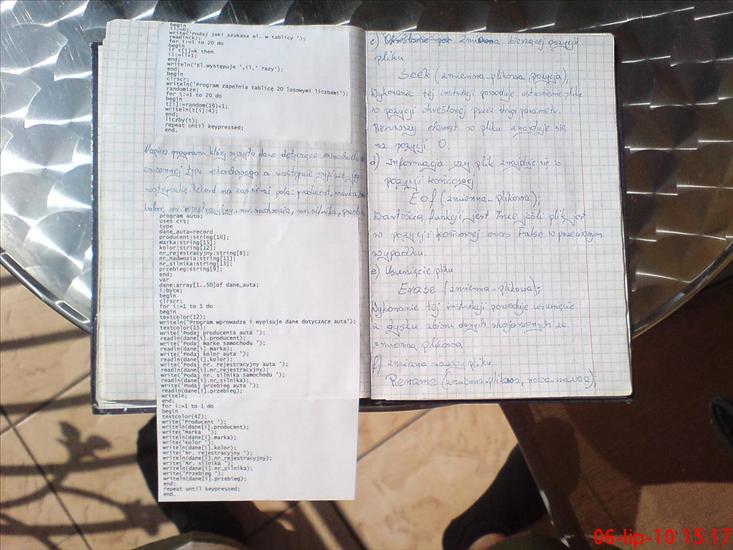 begin
il:=0;
write('Podaj jaki szukasz el. w tablicy ');
readln(k);
for i:=1 to 20 do
begin
if t[i]=k then
il:=il+1;
end;
writeln('El.występuje ',il,' razy');
end;
begin
clrscr;
writeln('Program zapełnia tablicę 20 losowymi liczbami');
randomize;
for i:=1 to 20 do
begin
t[i]:=random(29)+1;
writeln(t[i]:4);
end;
liczby(t);
repeat until keypressed;
end.
Napisz program który wczyta dane dotyczące samochodu w
zmiennej typu rekordowego a następnie wypisze je
Rekord ma zawierać pola: producent, marka,
kolor, nr rejestracyjny, nr nadwozia, nr silnika,
program auto;
uses crt;
type
dane_auta=record
producent:string[10];
marka:string[15];
kolor:string[12];
nr_rejestracyjny:string[8];
nr_nadwozia:string[13];
nr_silnika:string[13];
przebieg:string[9];
end;
var
dane:array[1..50]of dane_auta;
i:byte;
begin
clrscr;
for i:=1 to 1 do
begin
textcolor(12);
writeln('Program wprowadza i wypisuje dane dotyczące auta');
textcolor(15);
write('Podaj producenta auta ');
readln(dane[i].producent);
write('Podaj marke samochodu ');
readln(dane[i].marka);
write('Podaj kolor auta ');
readln(dane[i].kolor);
write('Podaj nr. rejestracyjny auta ');
readln(dane[i].nr_rejestracyjny);
write('Podaj nr. silnika samochodu ');
readln(dane[i].nr_silnika);
write('Podaj przebieg auta ');
readln(dane[i].przebieg);
writeln;
end;
for i:=1 to 1 do
begin
textcolor(42);
write('Producent ');
writeln(dane[i].producent);
write('Marka ');
writeln(dane[i].marka);
write('Kolor ');
writeln(dane[i].kolor);
write('Nr. rejestracyjny ');
writeln(dane[i].nr_rejestracyjny);
write('Nr. silnika ');
writeln(dane[i].nr_silnika);
write('Przebieg ');
writeln(dane[i].przebieg);
end;
repeat until keypressed;
end.
c) zmiana bieżącej pozycji
pliku
Seek (zmienna-plikowa, pozycja);
Wykonanie tej instrukcji powoduje ustawienie pliku
w pozycji określonej przez drugi parametr.
Pierwszy element w pliku znajduje się
na pozycji 0.
d) Informacja czy plik znajduje się w
pozycji końcowej
Eof (zmienna-plikowa);
Wartością funkcji jest True jeśli plik jest
w pozycji końcowej oraz False w przeciwnym
wypadku.
e) Usunięcie pliku
Erase (zmienna-plikowa);
Wykonanie tej instrukcji powoduje usunięcie
z dysku zbioru danych skojarzonych ze
zmienną plikową
f) zmiana nazwy pliku
Rename (zmienna-plikowa, nowa-nazwa);
06-lip-10 15:17